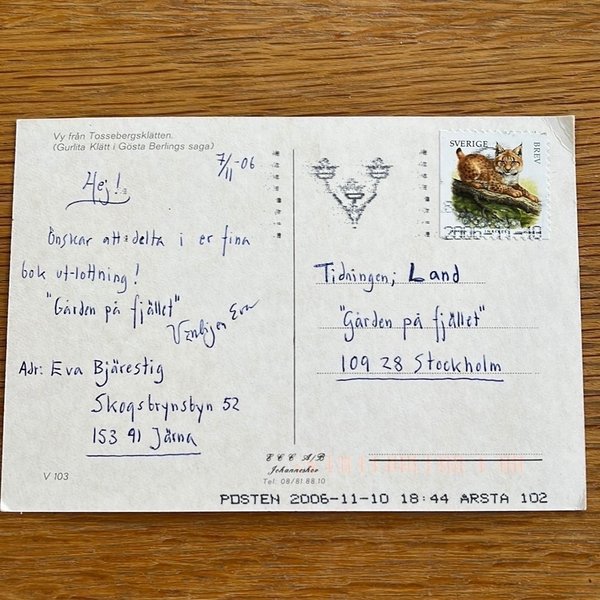 Vy från Tossebergsklätten.
(Gurlita Klätt i Gösta Berlings saga)
7/11 -06
Hej!
Önskar att delta i er fina
bok utlottning!
"Gården på fjället"
Vänligen Eva
Adr: Eva Bjärestig
Skogsbrynsbyn 52
153 91 Järna
V 103
SVERIGE
BREV
2006-11-10
Tidningen; Land
"Gården på fjället"
109 28 Stockholm
E C C A/B
Johanneshov
Tel. 08/81 88 10
POSTEN 2006-11-10 18:44 ARSTA 102